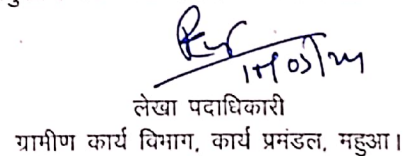 लेखा पदाधिकारी
ग्रामीण कार्य विभाग, कार्य प्रमंडल, महुआ।